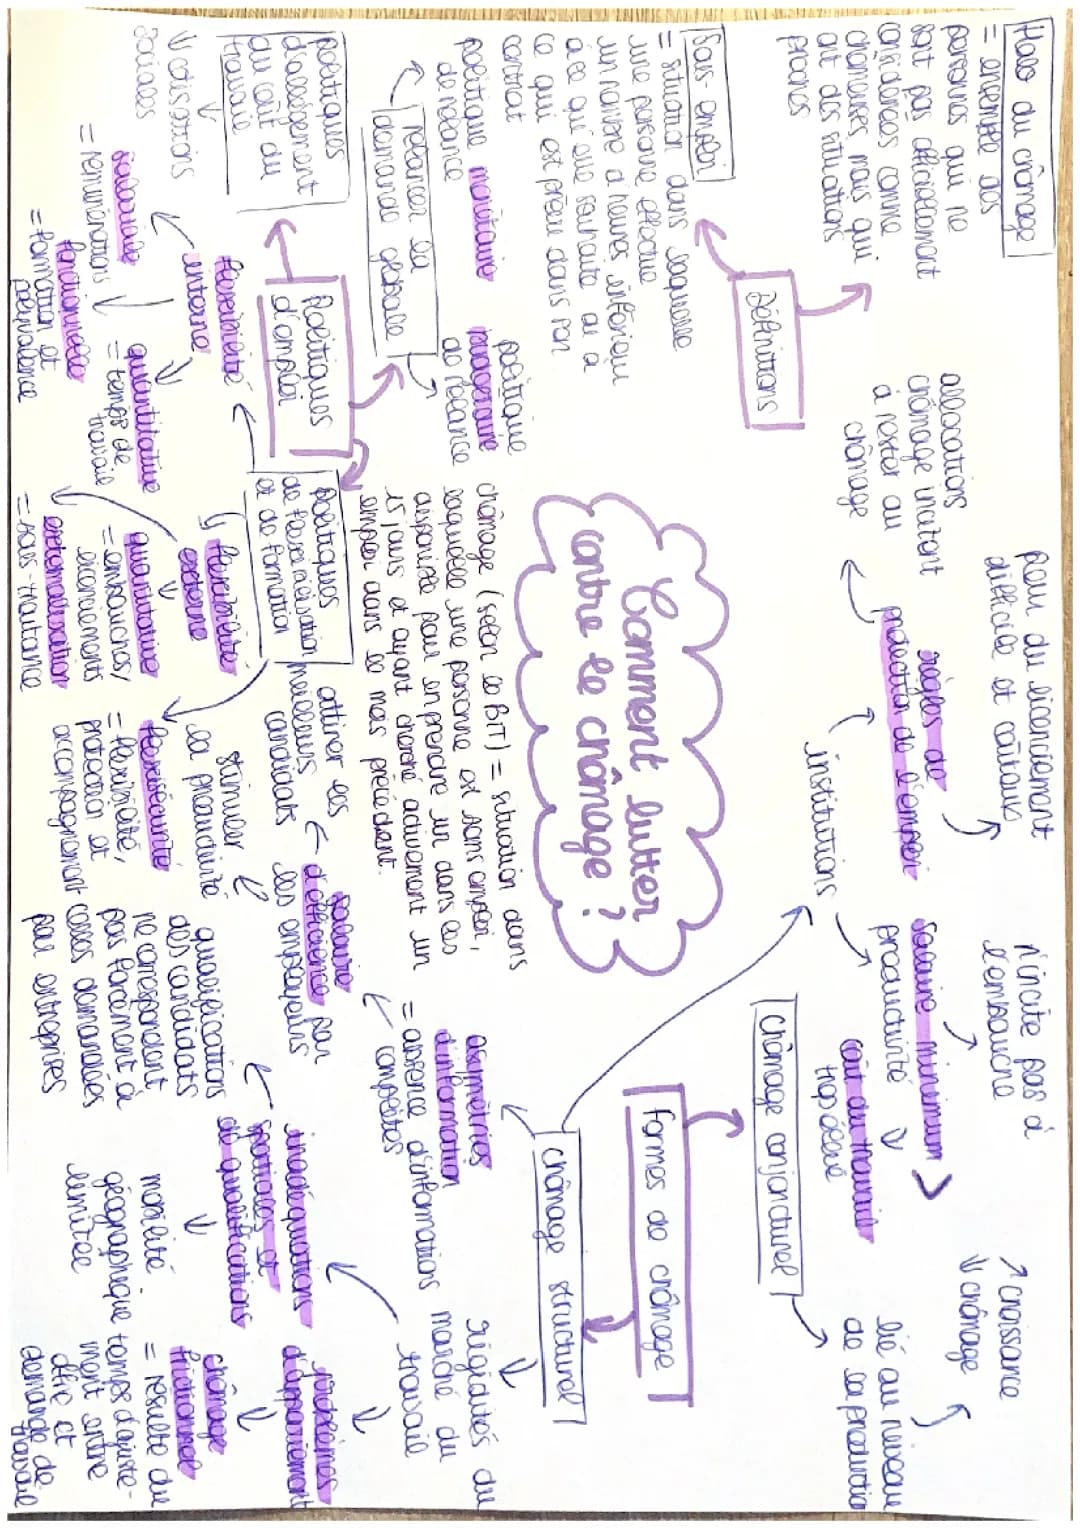 Halo du chômage
= ensemble des
personnes qui ne
sont pas officiellement
considérées comme
chômeurs, mais qui
ont des situations
proches
Sous-emploi
= situation dans laquelle
une personne effectue
un nombre d'heures inférieur
à ce qu'elle souhaite ou à
ce qui est prévu dans son
contrat
Définitions
allocations
chômage incitant
à rester au
chômage
peur du licenciement
difficile et coûteux
règles de
protection de l'emploi
institutions
n'incite pas à
l'embauche
salaire minimum >
productivité
coût du travail
trop élevé
↗ croissance
↓ chômage
lié au niveau
de la production
Chômage conjoncturel
formes de chômage
Chômage structurel
Comment lutter
contre le chômage ?
chômage (selon le BIT) = situation dans
laquelle une personne est sans emploi,
disponible pour en prendre un dans les
15 jours et ayant cherché activement un
emploi dans le mois précédent.
politique monétaire
de relance
politique
budgétaire
de relance
relancer la
demande globale
Politiques
d'emploi
politiques
d'allègement
du coût du
travail
↓ cotisations
sociales
politiques
de flexibilisation
et de formation
flexibilité
interne
salariale
= rémunérations
fonctionnelle
= formation et
polyvalence
quantitative
= temps de
travail
flexibilité
externe
quantitative
= embauches/
licenciements
externalisation
= sous-traitance
flexisécurité
= flexibilité,
protection et
accompagnement
attirer les
meilleurs
candidats
stimuler
la productivité
salaire
d'efficience par
les employeurs
asymétries
d'information
= absence d'informations
complètes
rigidités du
marché du
travail
qualifications
des candidats
ne correspondent
pas forcément à
celles demandées
par entreprises
inadéquations
spatiales et
de qualifications
mobilité
géographique
limitée
problèmes
d'appariement
chômage
frictionnel
= résulte du
temps d'ajuste-
ment entre
offre et
demande de
travail